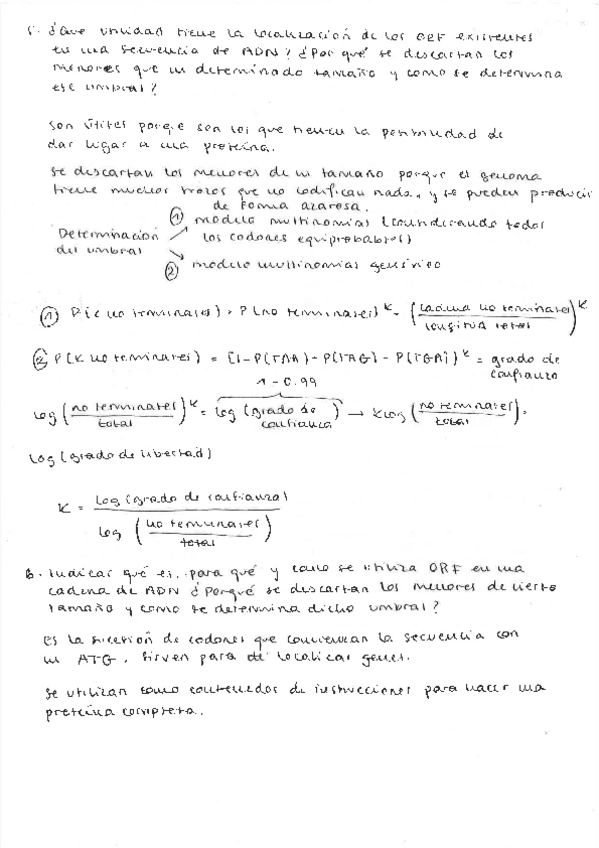 5. ¿Que utilidad tiene la localización de los ORF existentes
en una secuencia de ADN? ¿Por qué se descartan los
menores que un determinado tamaño y como se determina
ese umbral?
son útiles porque son los que tienen la posibilidad de
dar lugar a una proteína.
se descartan los menores de un tamaño porque el genoma
tiene muchos trozos que no codifican nada, y se pueden producir
de forma azarosa.
Determinación del umbral
① modelo multinomial (considerando todos
los codones equiprobables)
② modelo multinomial genérico
① P(K no terminales) = P(no terminales)^K = (cadena no terminales / longitud total)^K
② P(K no terminales) = [1-P(TAA)-P(TAG)-P(TGA)]^K = grado de
confianza
1-0.99
log (no terminales / total)^K = log (grado de confianza) → K log (no terminales / total) =
log (grado de libertad)
K = log (grado de confianza) / log (no terminales / total)
6. Indicar qué es, para qué y como se utiliza ORF en una
cadena de ADN ¿Porqué se descartan los menores de cierto
tamaño y como se determina dicho umbral?
Es la sucesión de codones que comienzan la secuencia con
un ATG. Sirven para de localizar genes.
se utilizan como contenedos de instrucciones para hacer una
proteína completa.